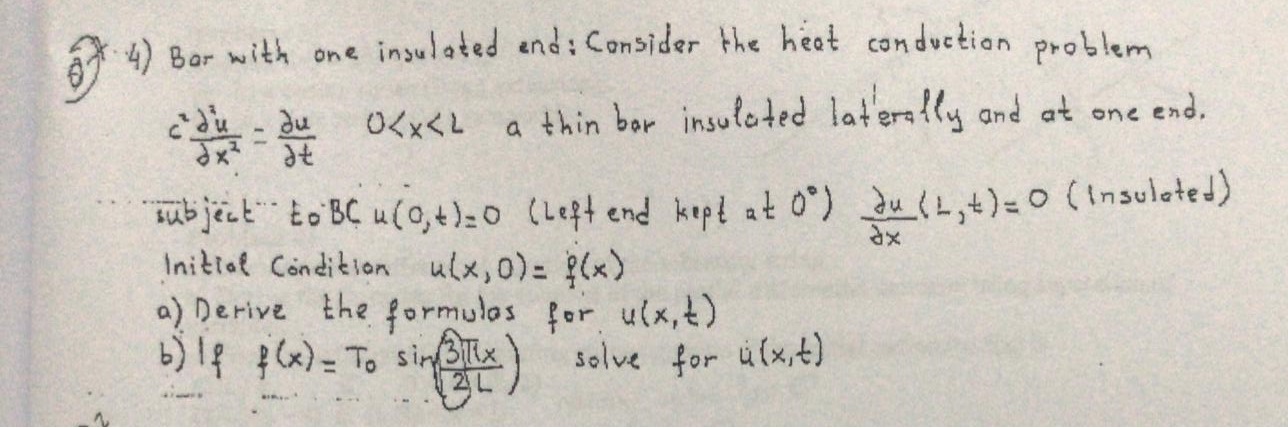 4) Bar with one insulated end: Consider the heat conduction problem
c² ∂²u/∂x² = ∂u/∂t 0<x<L a thin bar insulated laterally and at one end.
subject to BC u(0,t)=0 (Left end kept at 0°) ∂u/∂x (L,t)=0 (Insulated)
Initial Condition u(x,0)= f(x)
a) Derive the formulas for u(x,t)
b) If f(x)= T₀ sin(3πx/2L) solve for u(x,t)